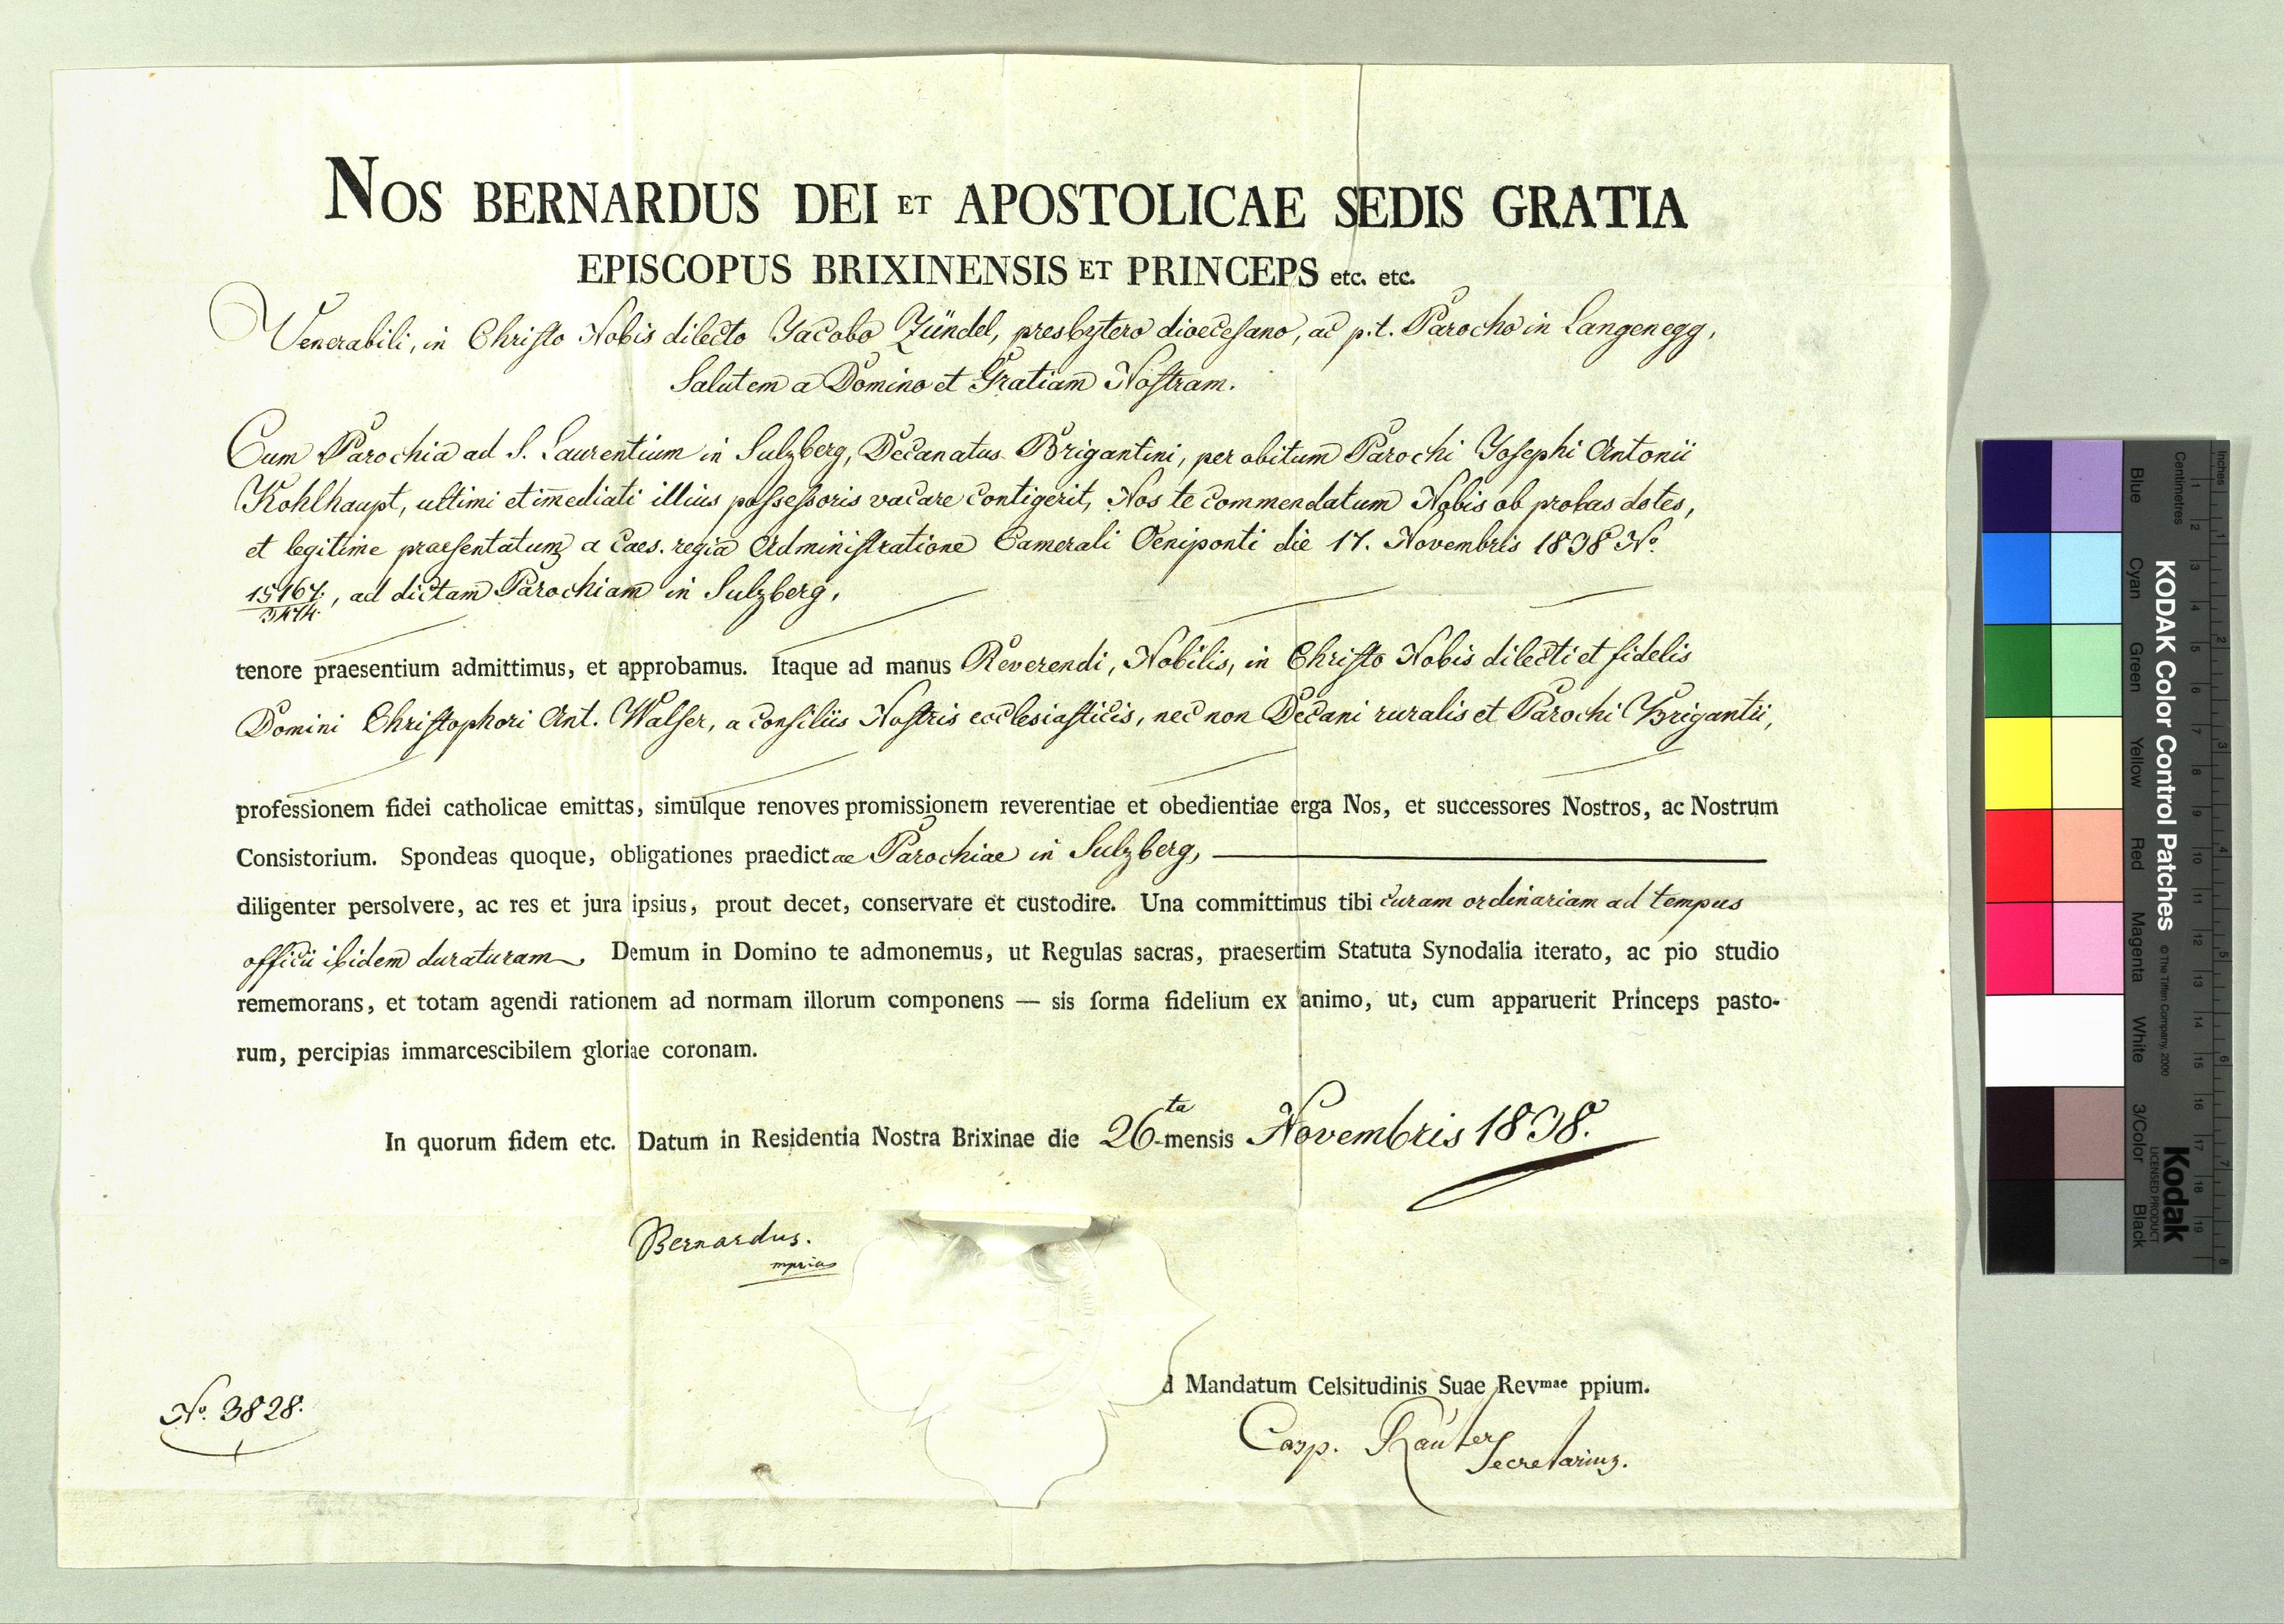 Nos BERNARDUS DEI ET APOSTOLICAE SEDIS GRATIA
EPISCOPUS BRIXINENSIS ET PRINCEPS etc. etc.
Venerabili, in Christo Nobis dilecto Jacobo Zündel, presbytero dioecesano, ac p.t. Parocho in Langenegg,
Salutem a Domino et Gratiam Nostram.
Cum Parochia ad S. Laurentium in Sulzberg, Decanatus Brigantini, per obitum Parochi Josephi Antonii
Kohlhaupt, ultimi et im̄ediati illius possessoris vacare contigerit, Nos te commendatum Nobis ob probas dotes,
et legitime praesentatum a Caes. regia Administratione Camerali Oeniponti die 17. Novembris 1838 No.
15167., ad dictam Parochiam in Sulzberg,
tenore praesentium admittimus, et approbamus. Itaque ad manus Reverendi, Nobilis, in Christo Nobis dilecti et fidelis
Domini Christophori Ant. Walser, a consiliis Nostris ecclesiasticis, nec non Decani ruralis et Parochi Brigantii,
professionem fidei catholicae emittas, simulque renoves promissionem reverentiae et obedientiae erga Nos, et successores Nostros, ac Nostrum
Consistorium. Spondeas quoque, obligationes praedictae Parochiae in Sulzberg,
diligenter persolvere, ac res et jura ipsius, prout decet, conservare et custodire. Una committimus tibi curam ordinariam ad tempus
officii ibidem duraturam. Demum in Domino te admonemus, ut Regulas sacras, praesertim Statuta Synodalia iterato, ac pio studio
rememorans, et totam agendi rationem ad normam illorum componens — sis forma fidelium ex animo, ut, cum apparuerit Princeps pasto-
rum, percipias immarcescibilem gloriae coronam.
In quorum fidem etc. Datum in Residentia Nostra Brixinae die 26ta mensis Novembris 1838.
Bernardus.
mpria
d Mandatum Celsitudinis Suae Revmae ppium.
No. 3828.
Casp. Rauter
Secretarius.
Inches
Centimetres
1 2 3 4 5 6 7 8
1 2 3 4 5 6 7 8 9 10 11 12 13 14 15 16 17 18 19
KODAK Color Control Patches © The Tiffen Company, 2000
Kodak
LICENSED PRODUCT
Blue Cyan Green Yellow Red Magenta White 3/Color Black